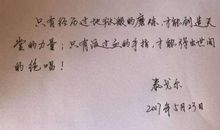 只有经历过地狱般的磨练，才能创造天
堂的力量；只有流过血的手指，才能弹出世间
的绝唱！
泰戈尔
2007年5月23日